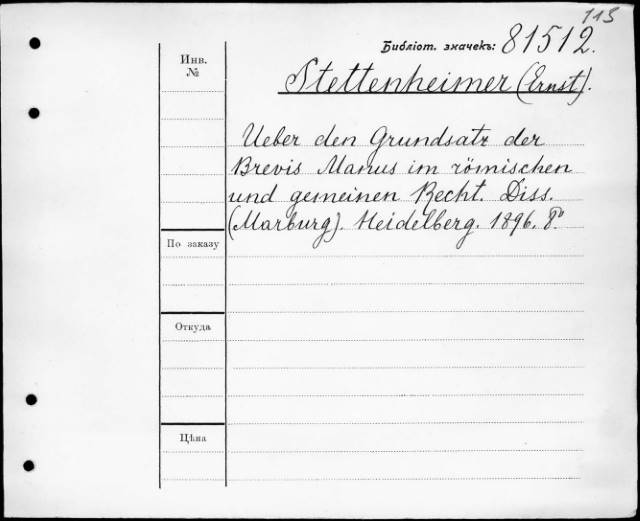 113
Библіот. значекъ: 81512.
Инв.
№
Stettenheimer (Ernst).
Ueber den Grundsatz der
Brevis Manus im römischen
und gemeinen Recht. Diss.
(Marburg). Heidelberg. 1896. 8°
По заказу
Откуда
Цѣна